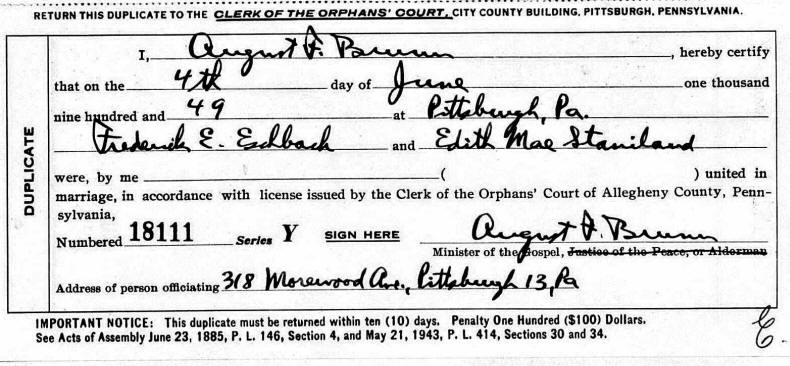 RETURN THIS DUPLICATE TO THE CLERK OF THE ORPHANS' COURT, CITY COUNTY BUILDING, PITTSBURGH, PENNSYLVANIA.
DUPLICATE
I, August F. Brunn, hereby certify
that on the 4th day of June one thousand
nine hundred and 49 at Pittsburgh, Pa.
Frederick E. Eschbach and Edith Mae Staniland
were, by me ( ) united in
marriage, in accordance with license issued by the Clerk of the Orphans' Court of Allegheny County, Penn-
sylvania,
Numbered 18111 Series Y SIGN HERE August F. Brunn
Minister of the Gospel, Justice of the Peace, or Alderman
Address of person officiating 318 Morewood Ave., Pittsburgh 13, Pa
IMPORTANT NOTICE: This duplicate must be returned within ten (10) days. Penalty One Hundred ($100) Dollars.
See Acts of Assembly June 23, 1885, P. L. 146, Section 4, and May 21, 1943, P. L. 414, Sections 30 and 34.